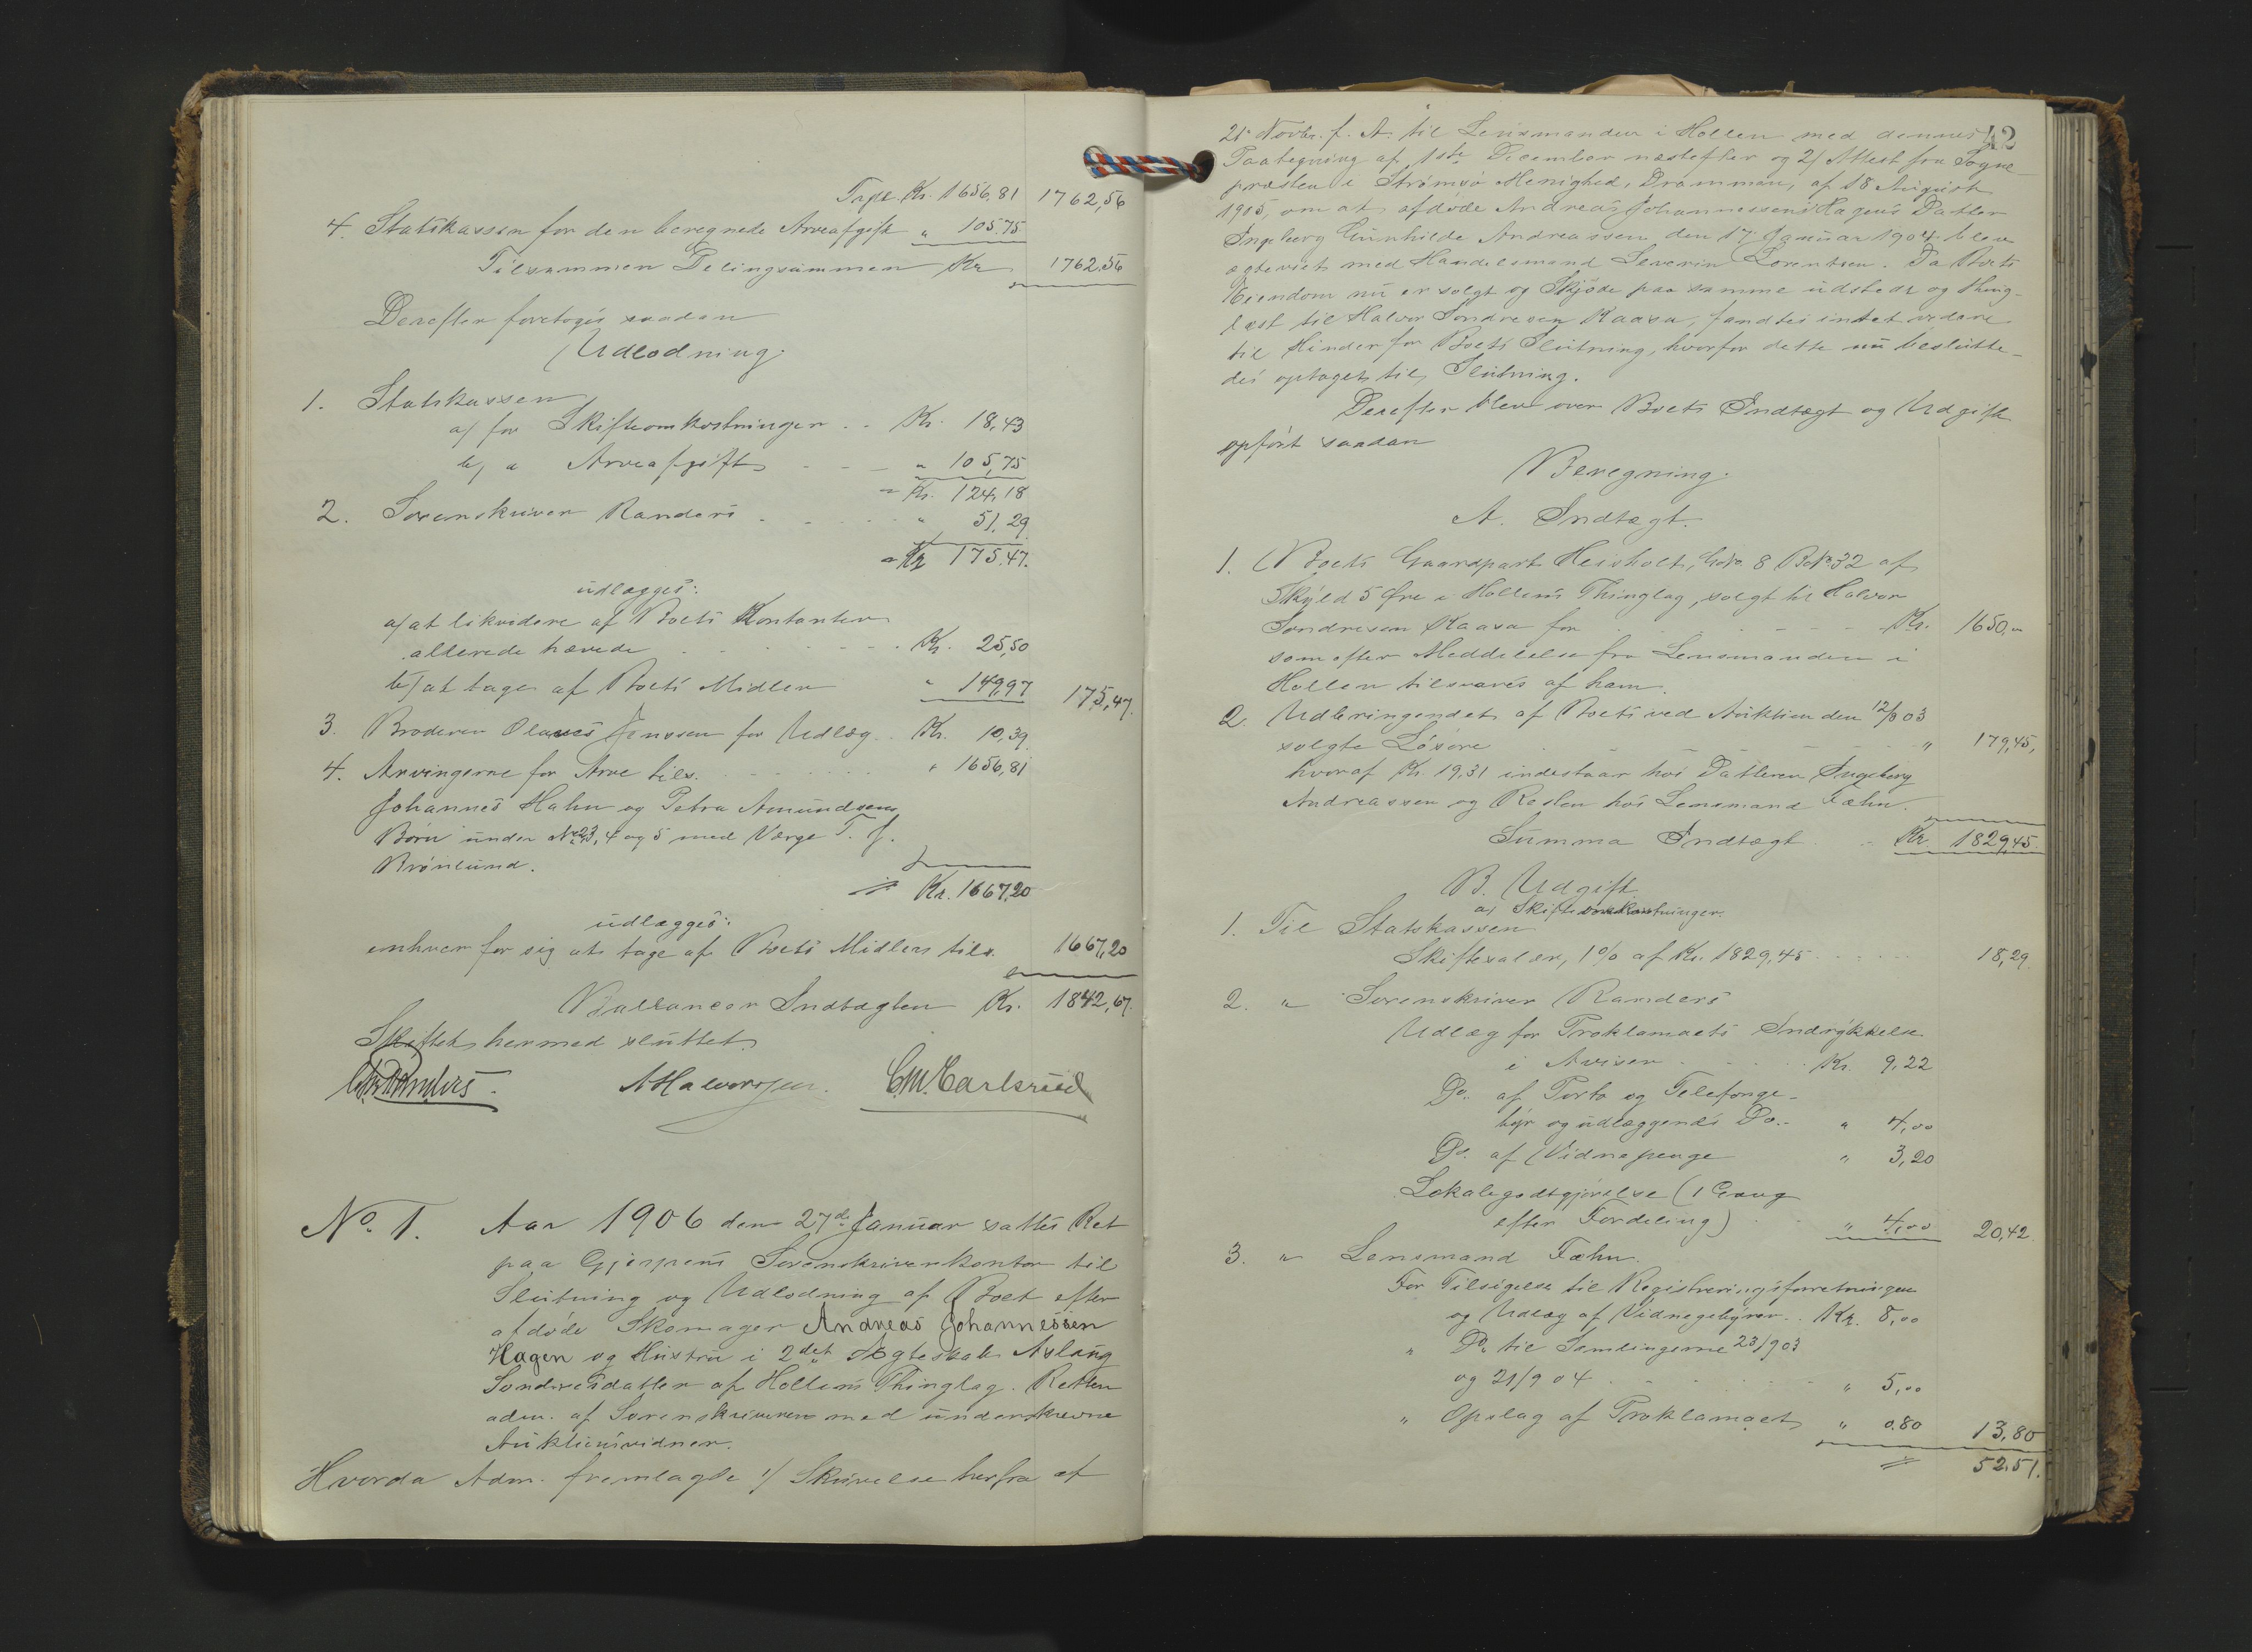 Trpt. Kr. 1656,81 1762,56
4. Statskassen for den beregnede Arveafgift " 105.75
Tilsammen Delingssummen Kr 1762,56
Derefter foretoges saadan
Udlodning:
1. Statskassen
a/ for Skifteomkostninger .. Kr. 18,43
b/ " Arveafgift - - - " 105,75
= Kr. 124,18
2. Sorenskriver Randers - - - " 51,29
= Kr 175,47.
udlægges:
a/ at likvidere af Boets Kontanter
allerede hævede - - - Kr. 25,50
b/ at tage af Boets Midler " 149,97 175,47.
3. Broderen Olaves Jenssen for Udlæg .. Kr. 10,39
4. Arvingerne for Arv tils. - - - " 1656,81
Johannes Hahn og Petra Amundsens
Børn under No 2,3, 4 og 5 med Værge T. J.
Brønlund.
= Kr. 1667,20
udlægges:
enhver for sig at tage af Boets Midler tils. 1667,20
Ballancer Indtægten Kr. 1842,67.
Skiftet hermed sluttet.
Randers. AHalvorsen. C.M. Carlsrud
No. 1. Aar 1906 den 27de Januar sattes Ret
paa Gjerpens Sorenskriverkontor til
Slutning og Udlodning af Boet efter
afdøde Skomager Andreas Johannessen
Hagen og Hustru i 2det Ægteskab Aslaug
Sondresdatter af Hollens Thinglag. Retten
adm. af Sorenskriveren med underskrevne
Auktionsvidner.
Hvorda Adm. fremlagde 1/ Skrivelse herfra af
42
21. Novbr. f. A. til Lensmanden i Hollen med dennes
Paategning af 1ste December næstefter og 2/ Attest fra Sogne-
præsten i Strømsø Menighed, Drammen, af 18 August
1905, om at afdøde Andreas Johannessens Hagens Datter
Ingeborg Gunhilde Andreassen den 17 Januar 1904 blev
ægteviet med Handelsmand Severin Lorentsen. Da Boets
Eiendom nu er solgt og Skjøde paa samme udstedt og thing-
læst til Halvor Sondresen Kaasa, fandtes intet videre
til Hinder for Boets Slutning, hvorfor dette nu beslutte-
des optaget til Slutning.
Derefter blev over Boets Indtægt og Udgift
opført saadan
Beregning.
A. Indtægt.
1. Boets Gaardpart Heisholt, Gdo. 8 Bo. 32 af
Skyld 5 Øre i Hollens Thinglag, solgt til Halvor
Sondresen Kaasa for - - - Kr. 1650,-
som efter Meddelelse fra Lensmanden i
Hollen tilsvares af ham.
2. Udbringendet af Boets ved Auktion den 12/8 03
solgte Løsøre - - - " 179,45,
hvoraf Kr. 19,31 indestaar hos Datteren Ingeborg
Andreassen og Resten hos Lensmand Fæhn.
Summa Indtægt - Kr. 1829,45.
B. Udgift
a/ Skifteomkostninger.
1. Til Statskassen
Skiftesalær, 1% af Kr. 1829,45 - - - 18,29
2. " Sorenskriver Randers
Udlæg for Proklamaets Indrykkelse
i Aviser - - - Kr. 9,22
Do. af Porto og Telefonge-
byr og udlæggendes Do.. " 4,00
Do. af Vidnepenge " 3,20
Lokalegodtgjørelse (1 Gang
efter Fordeling) - - " 4,00 20,42.
3. " Lensmand Fæhn.
For Tilsigelse til Registreringsforretningen
og Udlæg af Vidnegebyrer .. Kr. 8,00
" Do. til Samlingerne 23/9 03
og 21/9 04 - - - " 5,00
" Opslag af Proklamaet " 0.80 13,80
= 52,51.